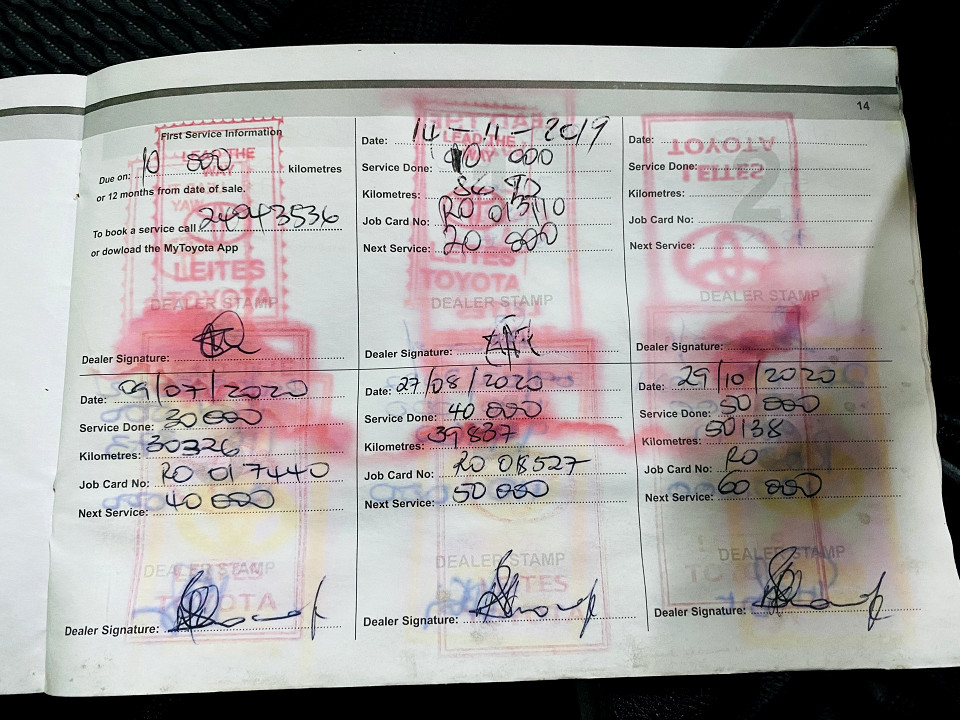 14
First Service Information
Due on: 10 000 kilometres
or 12 months from date of sale.
To book a service call 24943536
or dowload the MyToyota App
LEAD THE
WAY
LEITES
TOYOTA
DEALER STAMP
Dealer Signature:
Date: 14-11-2019
Service Done: 10 000
Kilometres:
Job Card No: RO 013110
Next Service: 20 000
LEAD THE
WAY
LEITES
TOYOTA
DEALER STAMP
Dealer Signature:
Date:
Service Done:
Kilometres:
Job Card No:
Next Service:
2
TOYOTA
LEITES
DEALER STAMP
Dealer Signature:
Date: 09/07/2020
Service Done: 30 000
Kilometres: 30326
Job Card No: RO 017440
Next Service: 40 000
DEALER STAMP
LEITES
TOYOTA
Dealer Signature:
Date: 27/08/2020
Service Done: 40 000
Kilometres: 39837
Job Card No: RO 08527
Next Service: 50 000
DEALER STAMP
LEITES
Dealer Signature:
Date: 29/10/2020
Service Done: 50 000
Kilometres: 50138
Job Card No: RO
Next Service: 60 000
DEALER STAMP
Dealer Signature: